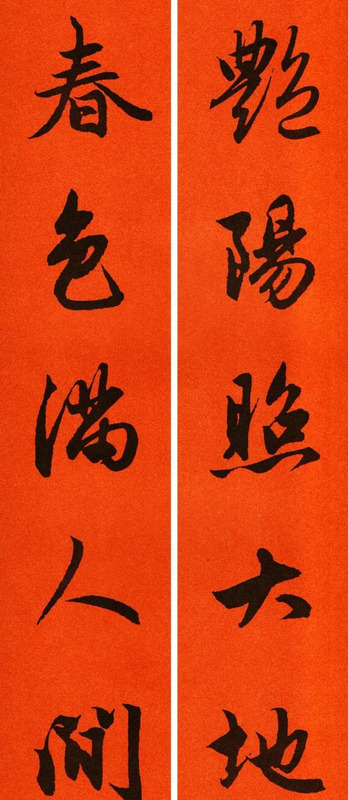 艶陽照大地
春色滿人間